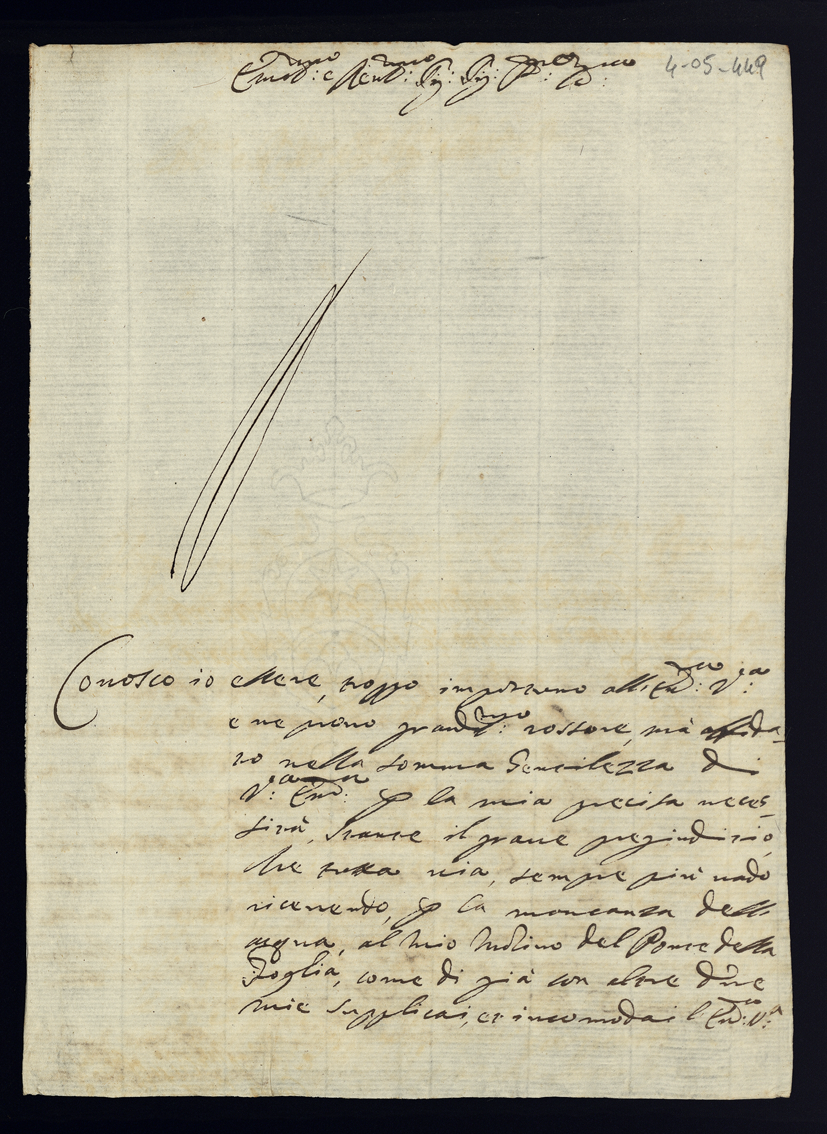 Em.mo e Reu.mo Sig: Sig: P.rone
4-05-449
Conosco io essere, troppo importuno all' Em.za V.a
e ne prouo grand.mo rossore, mà affida
to nella somma Gentilezza di
V.a Em.za p la mia precisa neces-
sità, stante il graue pregiudizio,
che tutta uia, sempre più uado
riceuendo, p la mancanza dell'
acqua, al mio Molino del Ponte della
Foglia, come di già con altre due
mie supplicai, et incomodai l'Em.za V.a